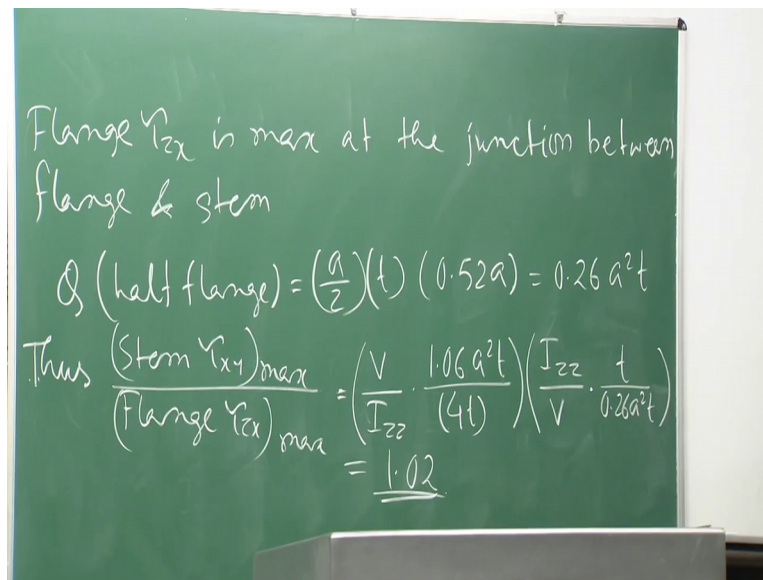 Flange τzx is max at the junction between
flange & stem
Q (half flange) = (a/2)(t) (0.52a) = 0.26 a²t
Thus (Stem τxy)max / (Flange τzx)max = (V/Izz · 1.06a²t/(4t)) (Izz/V · t/0.26a²t)
= 1.02